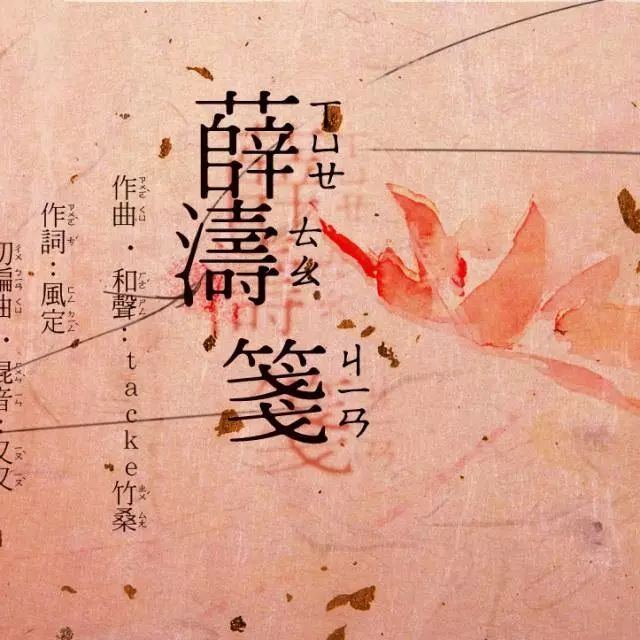 薛濤箋
ㄒㄩㄝ ㄊㄠ ㄐㄧㄢ
作曲・和聲：tacke竹桑
作詞：風定
編曲・混音：